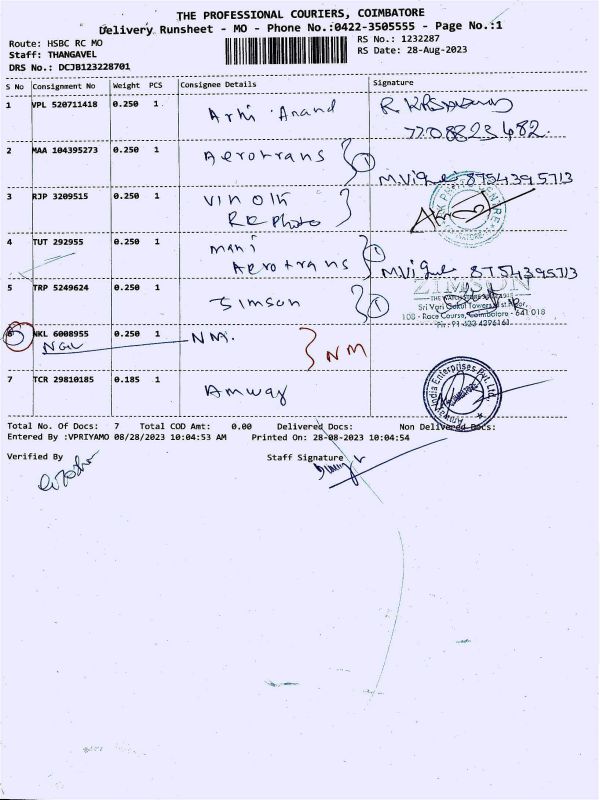 THE PROFESSIONAL COURIERS, COIMBATORE
Delivery Runsheet - MO - Phone No.:0422-3505555 - Page No.:1
Route: HSBC RC MO
RS No.: 1232287
Staff: THANGAVEL
RS Date: 28-Aug-2023
DRS No.: DCJB123228701
S No Consignment No Weight PCS Consignee Details Signature
1 VPL 520711418 0.250 1 Anand
7708823482.
2 MAA 104395273 0.250 1 Aerotrans 1
8754395713
3 RJP 3209515 0.250 1 vinoth
RK Photo
4 TUT 292955 0.250 1 mani 1
Aerotrans
8754395713
5 TRP 5249624 0.250 1 Simson 1
ZIMSON
Sri Vari Gokul Towers
108 - Race Course, Coimbatore - 641 018
6 NKL 6008955 0.250 1 NM. NM
NGL
7 TCR 29810185 0.185 1 Amway
Amway India Enterprises Pvt. Ltd.
Total No. Of Docs: 7 Total COD Amt: 0.00 Delivered Docs: Non Delivered Docs:
Entered By :VPRIYAMO 08/28/2023 10:04:53 AM Printed On: 28-08-2023 10:04:54
Verified By Staff Signature